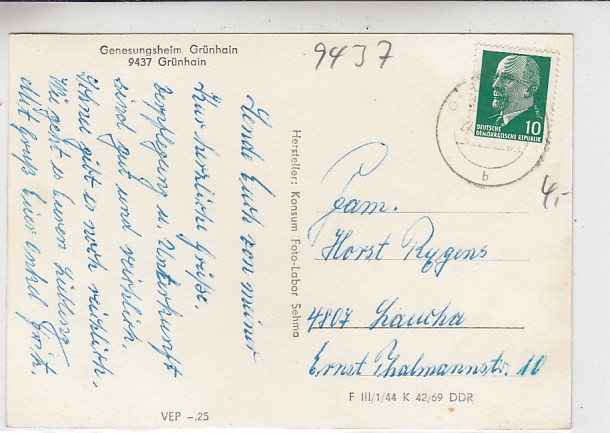 Genesungsheim Grünhain
9437 Grünhain
9437
DEUTSCHE
DEMOKRATISCHE REPUBLIK
10
b
4,-
Sende Euch von meiner
Kur herzliche Grüße.
Verpflegung u. Unterkunft
sind gut und reichlich.
Schnee gibt es noch reichlich.
Wie geht es Euren
Mit Gruß Euer Onkel Fritz.
Hersteller: Konsum Foto-Labor Sehma
Fam.
Horst Rygens
4807 Laucha
Ernst Thalmannstr. 10
F III/1/44 K 42/69 DDR
VEP -.25